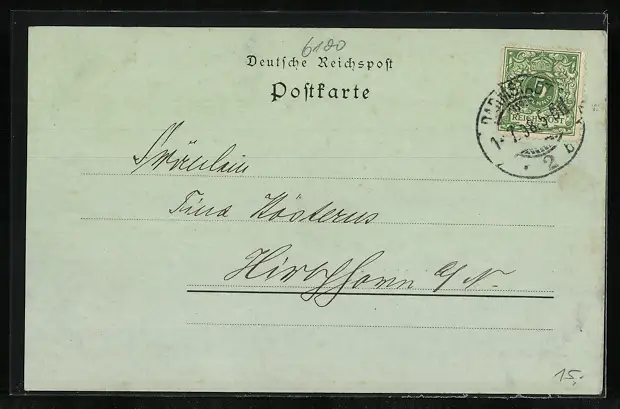 6100
Deutsche Reichspost
Postkarte
REICHSPOST
1. 7. 98. 5-6N
* 2 b
Fräulein
Tina Kösterus
Hirschhorn a/N.
15,-